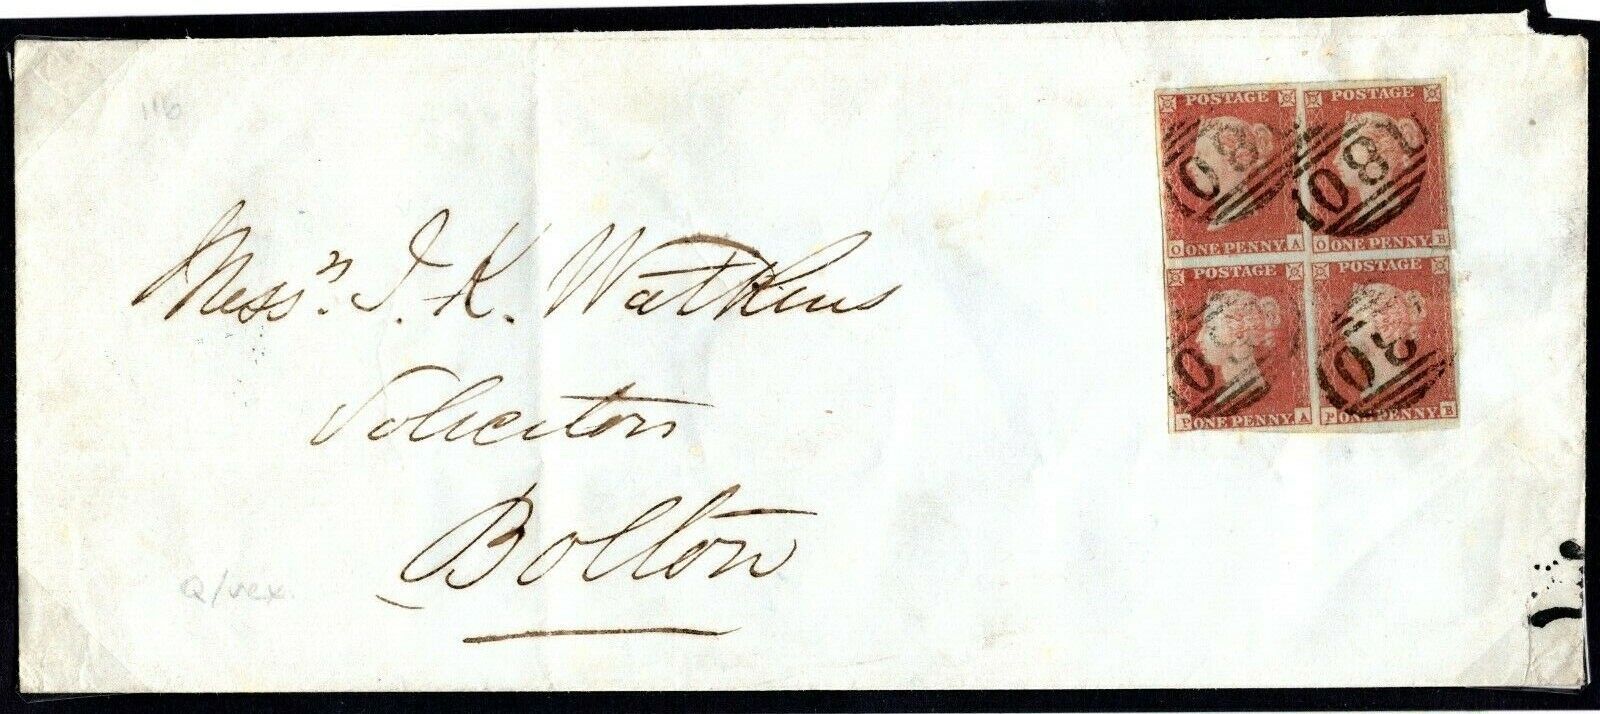 116
POSTAGE POSTAGE
08 08
O ONE PENNY A O ONE PENNY B
POSTAGE POSTAGE
08 08
P ONE PENNY A P ONE PENNY B
Messrs. J. K. Watkins
Solicitors
Bolton
Q/vex.